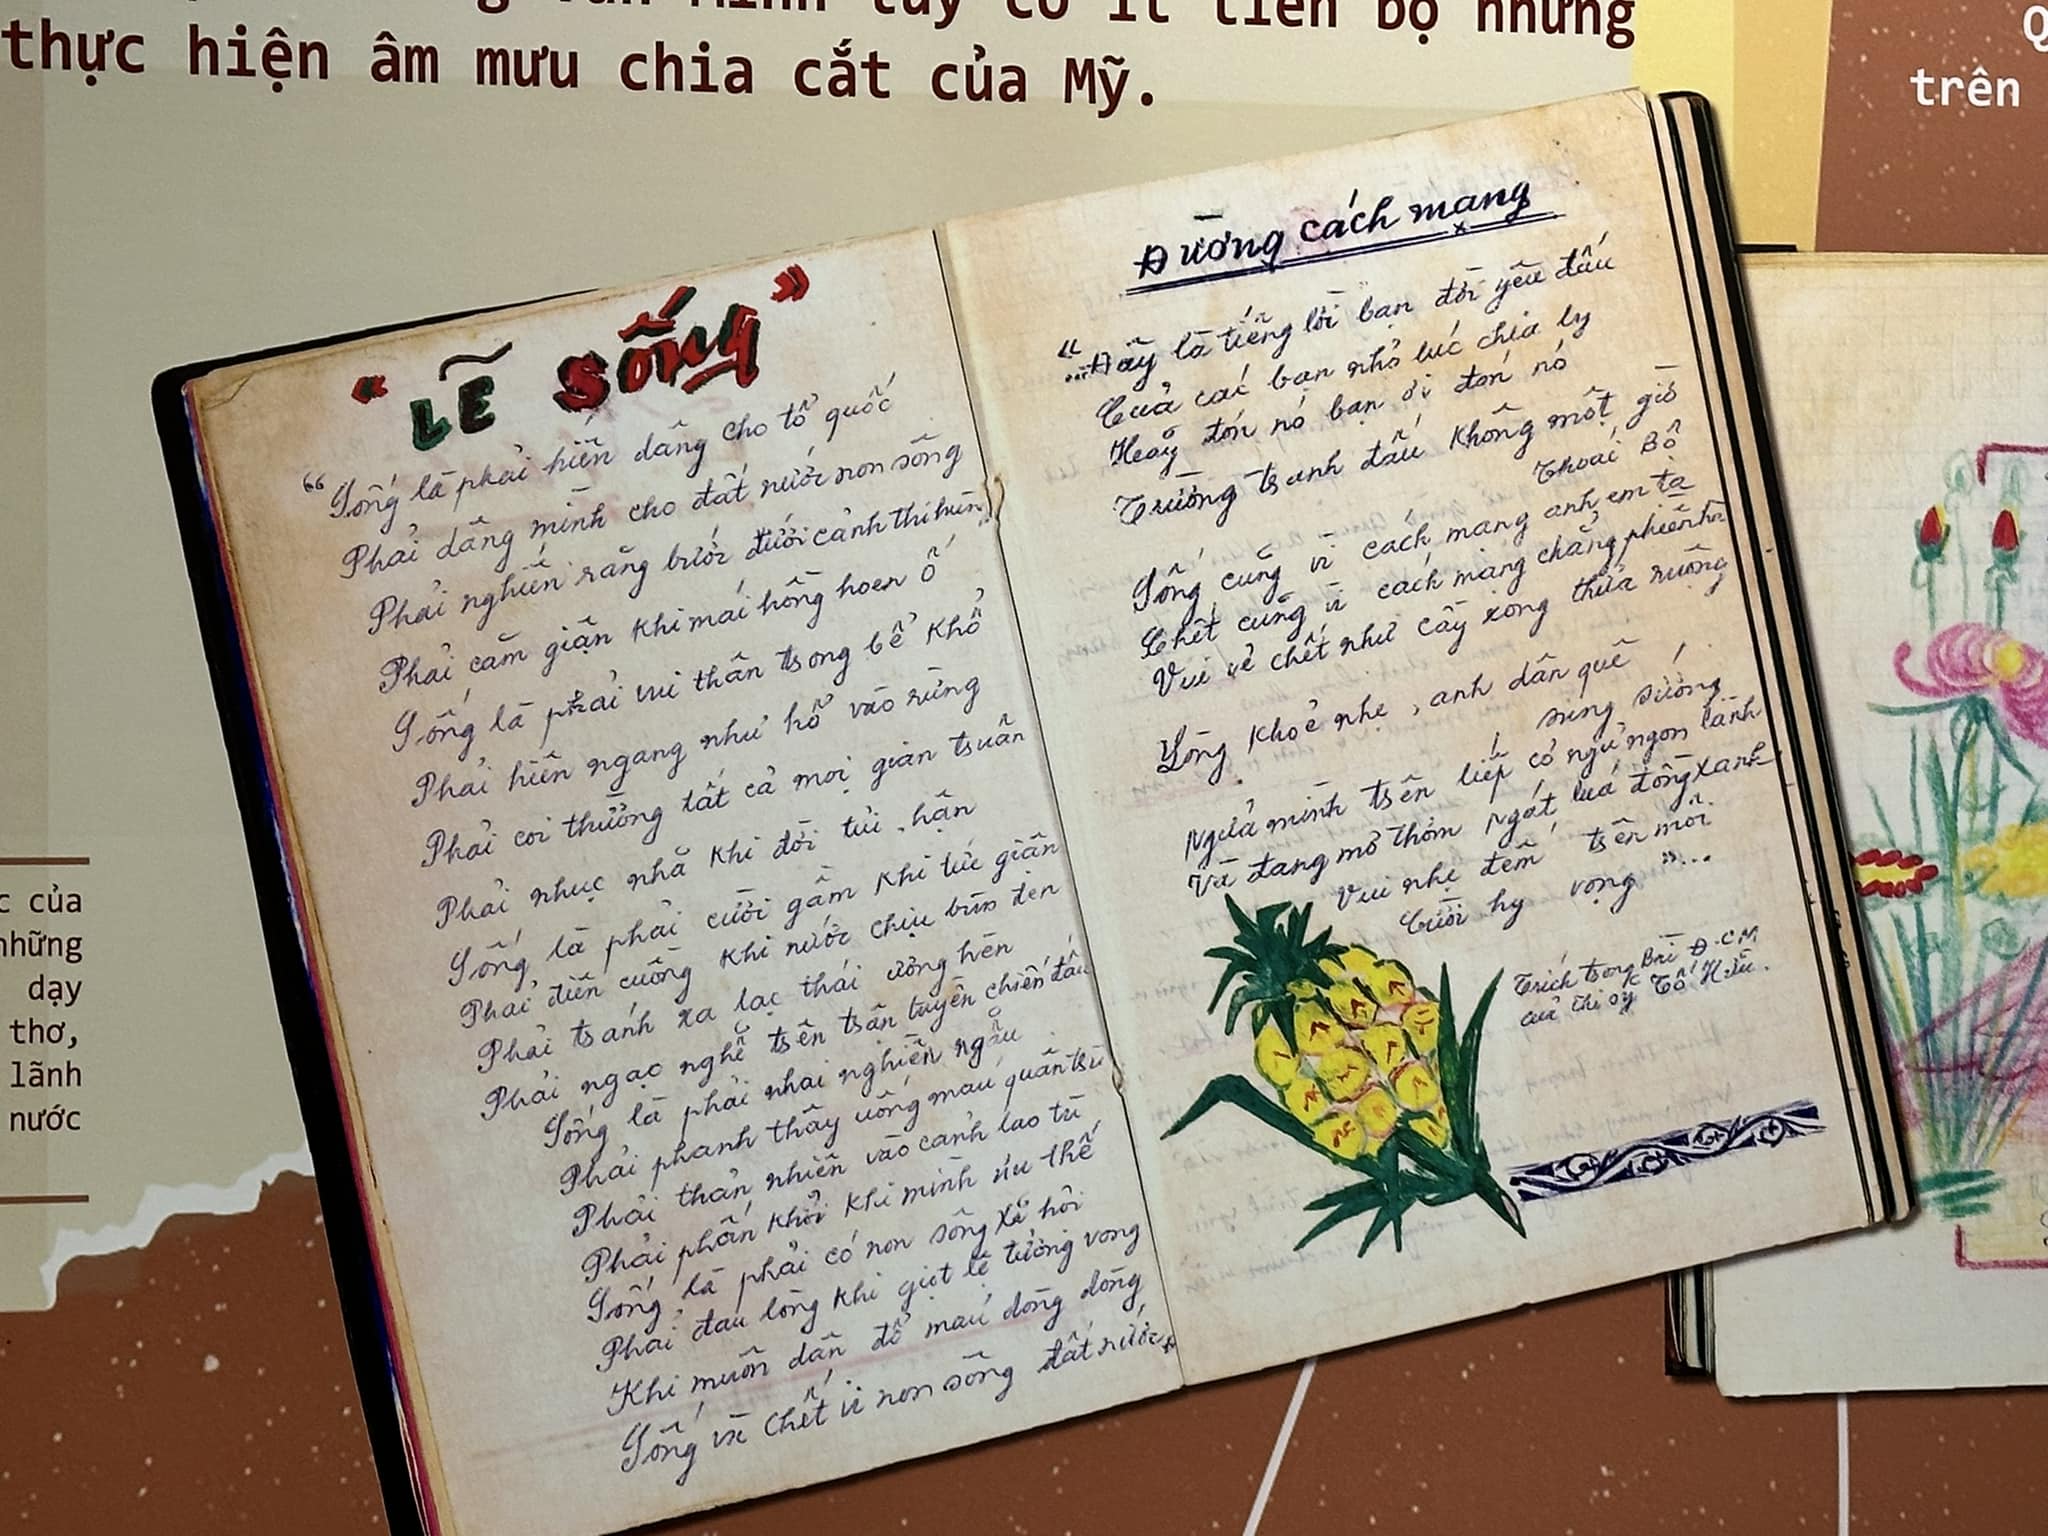 tuy có ít tiến bộ nhưng
thực hiện âm mưu chia cắt của Mỹ.
trên
c của
những
dạy
thơ,
lãnh
nước
"LẼ SỐNG"
"Sống là phải hiến dâng cho tổ quốc
Phải dâng mình cho đất nước non sông
Phải nghiến răng bước dưới cảnh thi hùm
Phải căm giận khi mái hồng hoen ố
Sống là phải vui thân trong bể khổ
Phải hiên ngang như hổ vào rừng
Phải coi thường tất cả mọi gian truân
Phải nhục nhã khi đời tủi hận
Sống là phải cười gầm khi tức giận
Phải điên cuồng khi nước chịu bùn đen
Phải tránh xa lạc thái ương hèn
Phải ngạo nghễ trên trận tuyến chiến đấu
Sống là phải nhai nghiến ngấu
Phải phanh thây uống máu quân thù
Phải thản nhiên vào cảnh lao tù
Phải phấn khởi khi mình ưu thế
Sống là phải có non sông xã hội
Phải đau lòng khi giọt lệ tưởng vong
Khi muôn dân đổ máu dòng dòng
Sống và chết vì non sông đất nước
Đường cách mạng
"...Đây là tiếng lời bạn đời yêu dấu
Của các bạn nhỏ lúc chia ly
Heãy đón nó bạn ơi đón nó
Trường tranh đấu không một giờ
Thoái Bộ
Sống cũng vì cách mạng anh em ta
Chết cũng vì cách mạng chẳng phiền hà
Vui vẻ chết như cầy xong thửa ruộng
Lòng khoẻ nhẹ, anh dân quê
sung sướng
Ngửa mình trên liếp cỏ ngủ ngon lành
Và đang mơ thơm ngát luá đồng xanh
Vui nhẹ đêm trên môi
Cười hy vọng"...
Trích trong Bài Đ.C.M
của thi sỹ Tố Hữu.